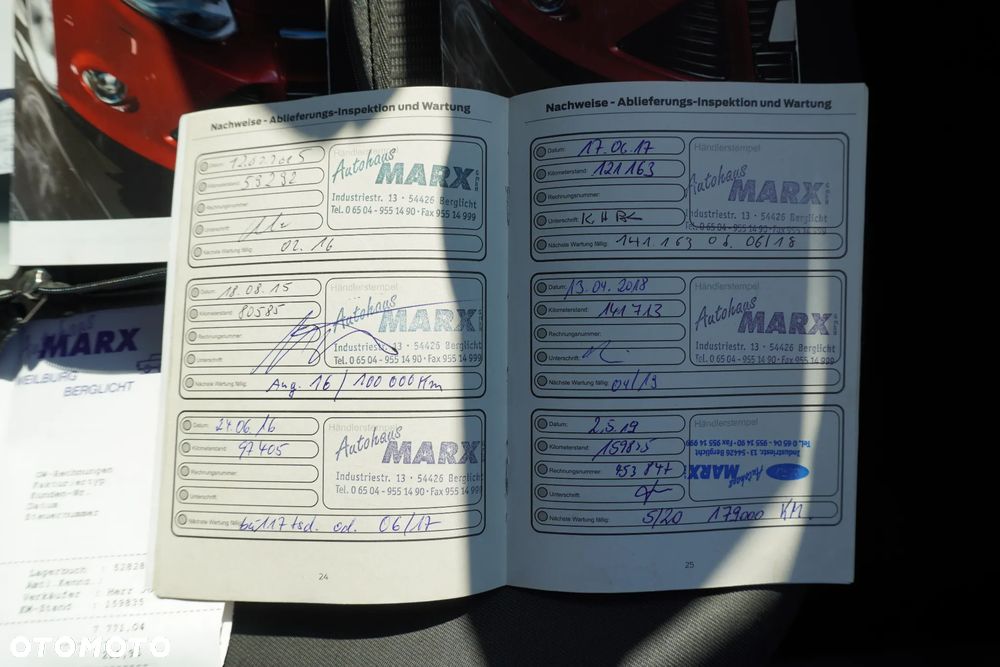 Nachweise - Ablieferungs-Inspektion und Wartung
Datum: 12.02.2015
Kilometerstand: 59292
Rechnungsnummer:
Unterschrift:
Nächste Wartung fällig: 02.16
Autohaus
MARX GmbH
Industriestr. 13 · 54426 Berglicht
Tel. 0 65 04 - 955 14 90 · Fax 955 14 999
Datum: 18.08.15
Kilometerstand: 80585
Rechnungsnummer:
Unterschrift:
Nächste Wartung fällig: Aug. 16 / 100 000 Km
Händlerstempel
Autohaus
MARX
Industriestr. 13 · 54426 Berglicht
Tel. 0 65 04 - 955 14 90 · Fax 955 14 999
Datum: 24.06.16
Kilometerstand: 97405
Rechnungsnummer:
Unterschrift:
Nächste Wartung fällig: bei 117 tsd. od. 06/17
Händlerstempel
Autohaus
MARX
Industriestr. 13 · 54426 Berglicht
Tel. 0 65 04 - 955 14 90 · Fax 955 14 999
24
Nachweise - Ablieferungs-Inspektion und Wartung
Datum: 17.06.17
Kilometerstand: 121163
Rechnungsnummer:
Unterschrift:
Nächste Wartung fällig: 141.163 od. 06/18
Händlerstempel
Autohaus
MARX
Industriestr. 13 · 54426 Berglicht
Tel. 0 65 04 - 955 14 90 · Fax 955 14 999
Datum: 13.04.2018
Kilometerstand: 141713
Rechnungsnummer:
Unterschrift:
Nächste Wartung fällig: 04/19
Händlerstempel
Autohaus
MARX GmbH
Industriestr. 13 · 54426 Berglicht
Tel. 0 65 04 - 955 14 90 · Fax 955 14 999
Datum: 2.5.19
Kilometerstand: 159835
Rechnungsnummer: 453847
Unterschrift:
Nächste Wartung fällig: 5/20 179000 KM.
Händlerstempel
Autohaus
MARX
Industriestr. 13 · 54426 Berglicht
Tel. 0 65 04 - 955 14 90 · Fax 955 14 999
25
MARX
BERGLICHT
Fakturiertyp
Kunden-Nr.
Datum
Steuernummer
Lagerbuch : 52828
Amtl.Kennz. :
Verkäufer : Herr
KM-Stand : 159835
7.771,04
OTOMOTO